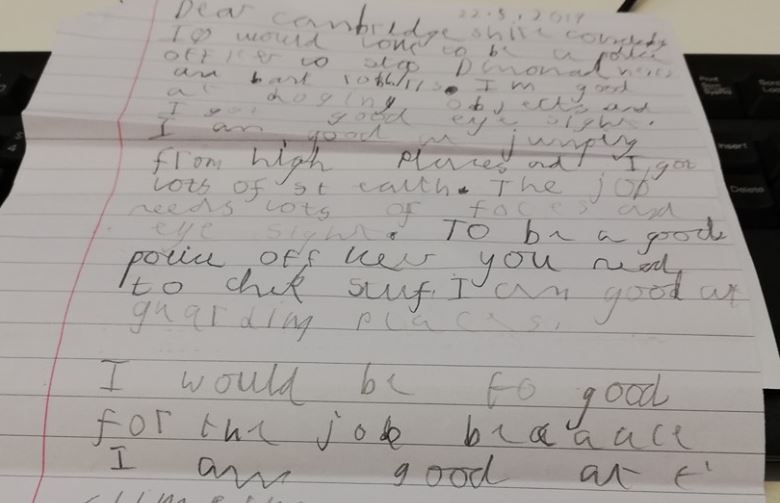 Dear cambridgeshire
22.5.2019
I would love to be a police
officer to stop
an bank I'm good
at doging objects and
I got good eye sight.
I am good in jumping
from high places and I got
lots of st ealth. The job
needs lots of foces and
eye sight. TO be a good
police officer you need
to chek surf. I am good at
guarding places.
I would be fo good
for the job
I am good at